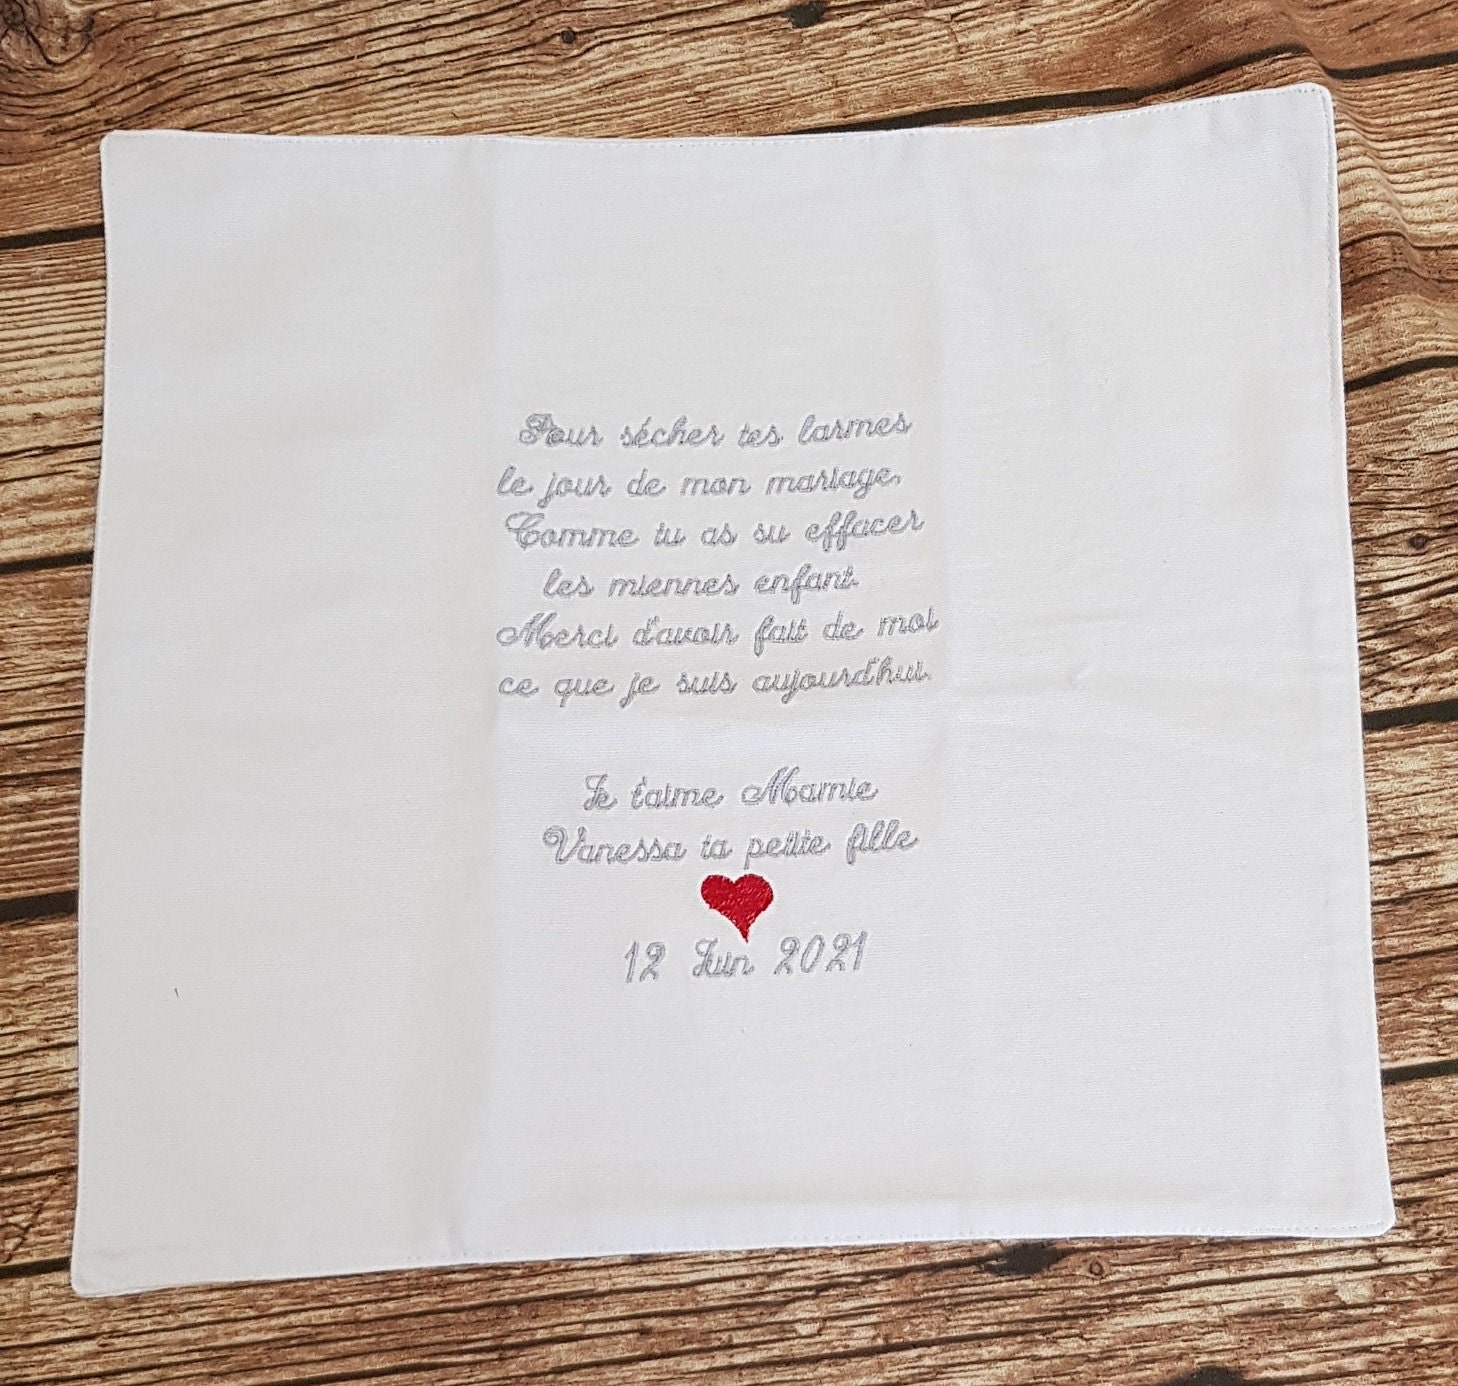 Pour sécher tes larmes
le jour de mon mariage,
Comme tu as su effacer
les miennes enfant.
Merci d'avoir fait de moi
ce que je suis aujourd'hui.
Je t'aime Mamie
Vanessa ta petite fille
12 Juin 2021